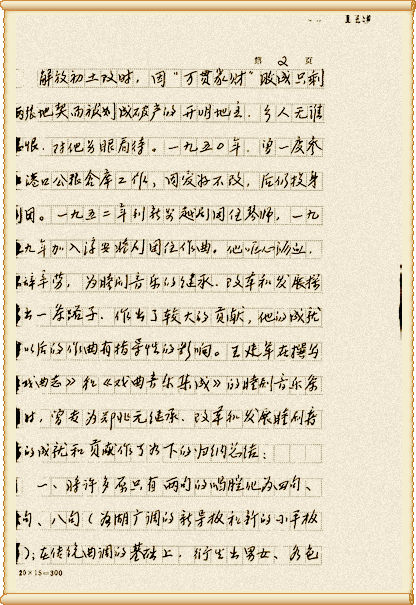 第 2 页
解放初土改时,因"万贯家财"败成只剩
两张地契而被划成破产的开明地主,乡人无谁
恨,对他另眼看待。一九五〇年,曾一度参
港口公粮仓库工作,因爱好不改,后仍投身
剧团。一九五二年到新安越剧团任琴师,一九
九年加入淳安睦剧团任作曲。他呕心沥血,
辞辛劳,为睦剧音乐的继承、改革和发展摸
出一条路子,作出了较大的贡献,他的成就
以后的作曲有指导性的影响。王 年在撰写
戏曲志》和《戏曲音乐集成》的睦剧音乐条
时,曾专为邓兆元继承、改革和发展睦剧音
的成就和贡献作了如下的归纳总结:
一、将许多虽只有两句的唱腔化为四句、
句、八句(如湖广调的新导板和新的小平板
);在传统曲调的基础上,衍生出男女、各色
20×15=300